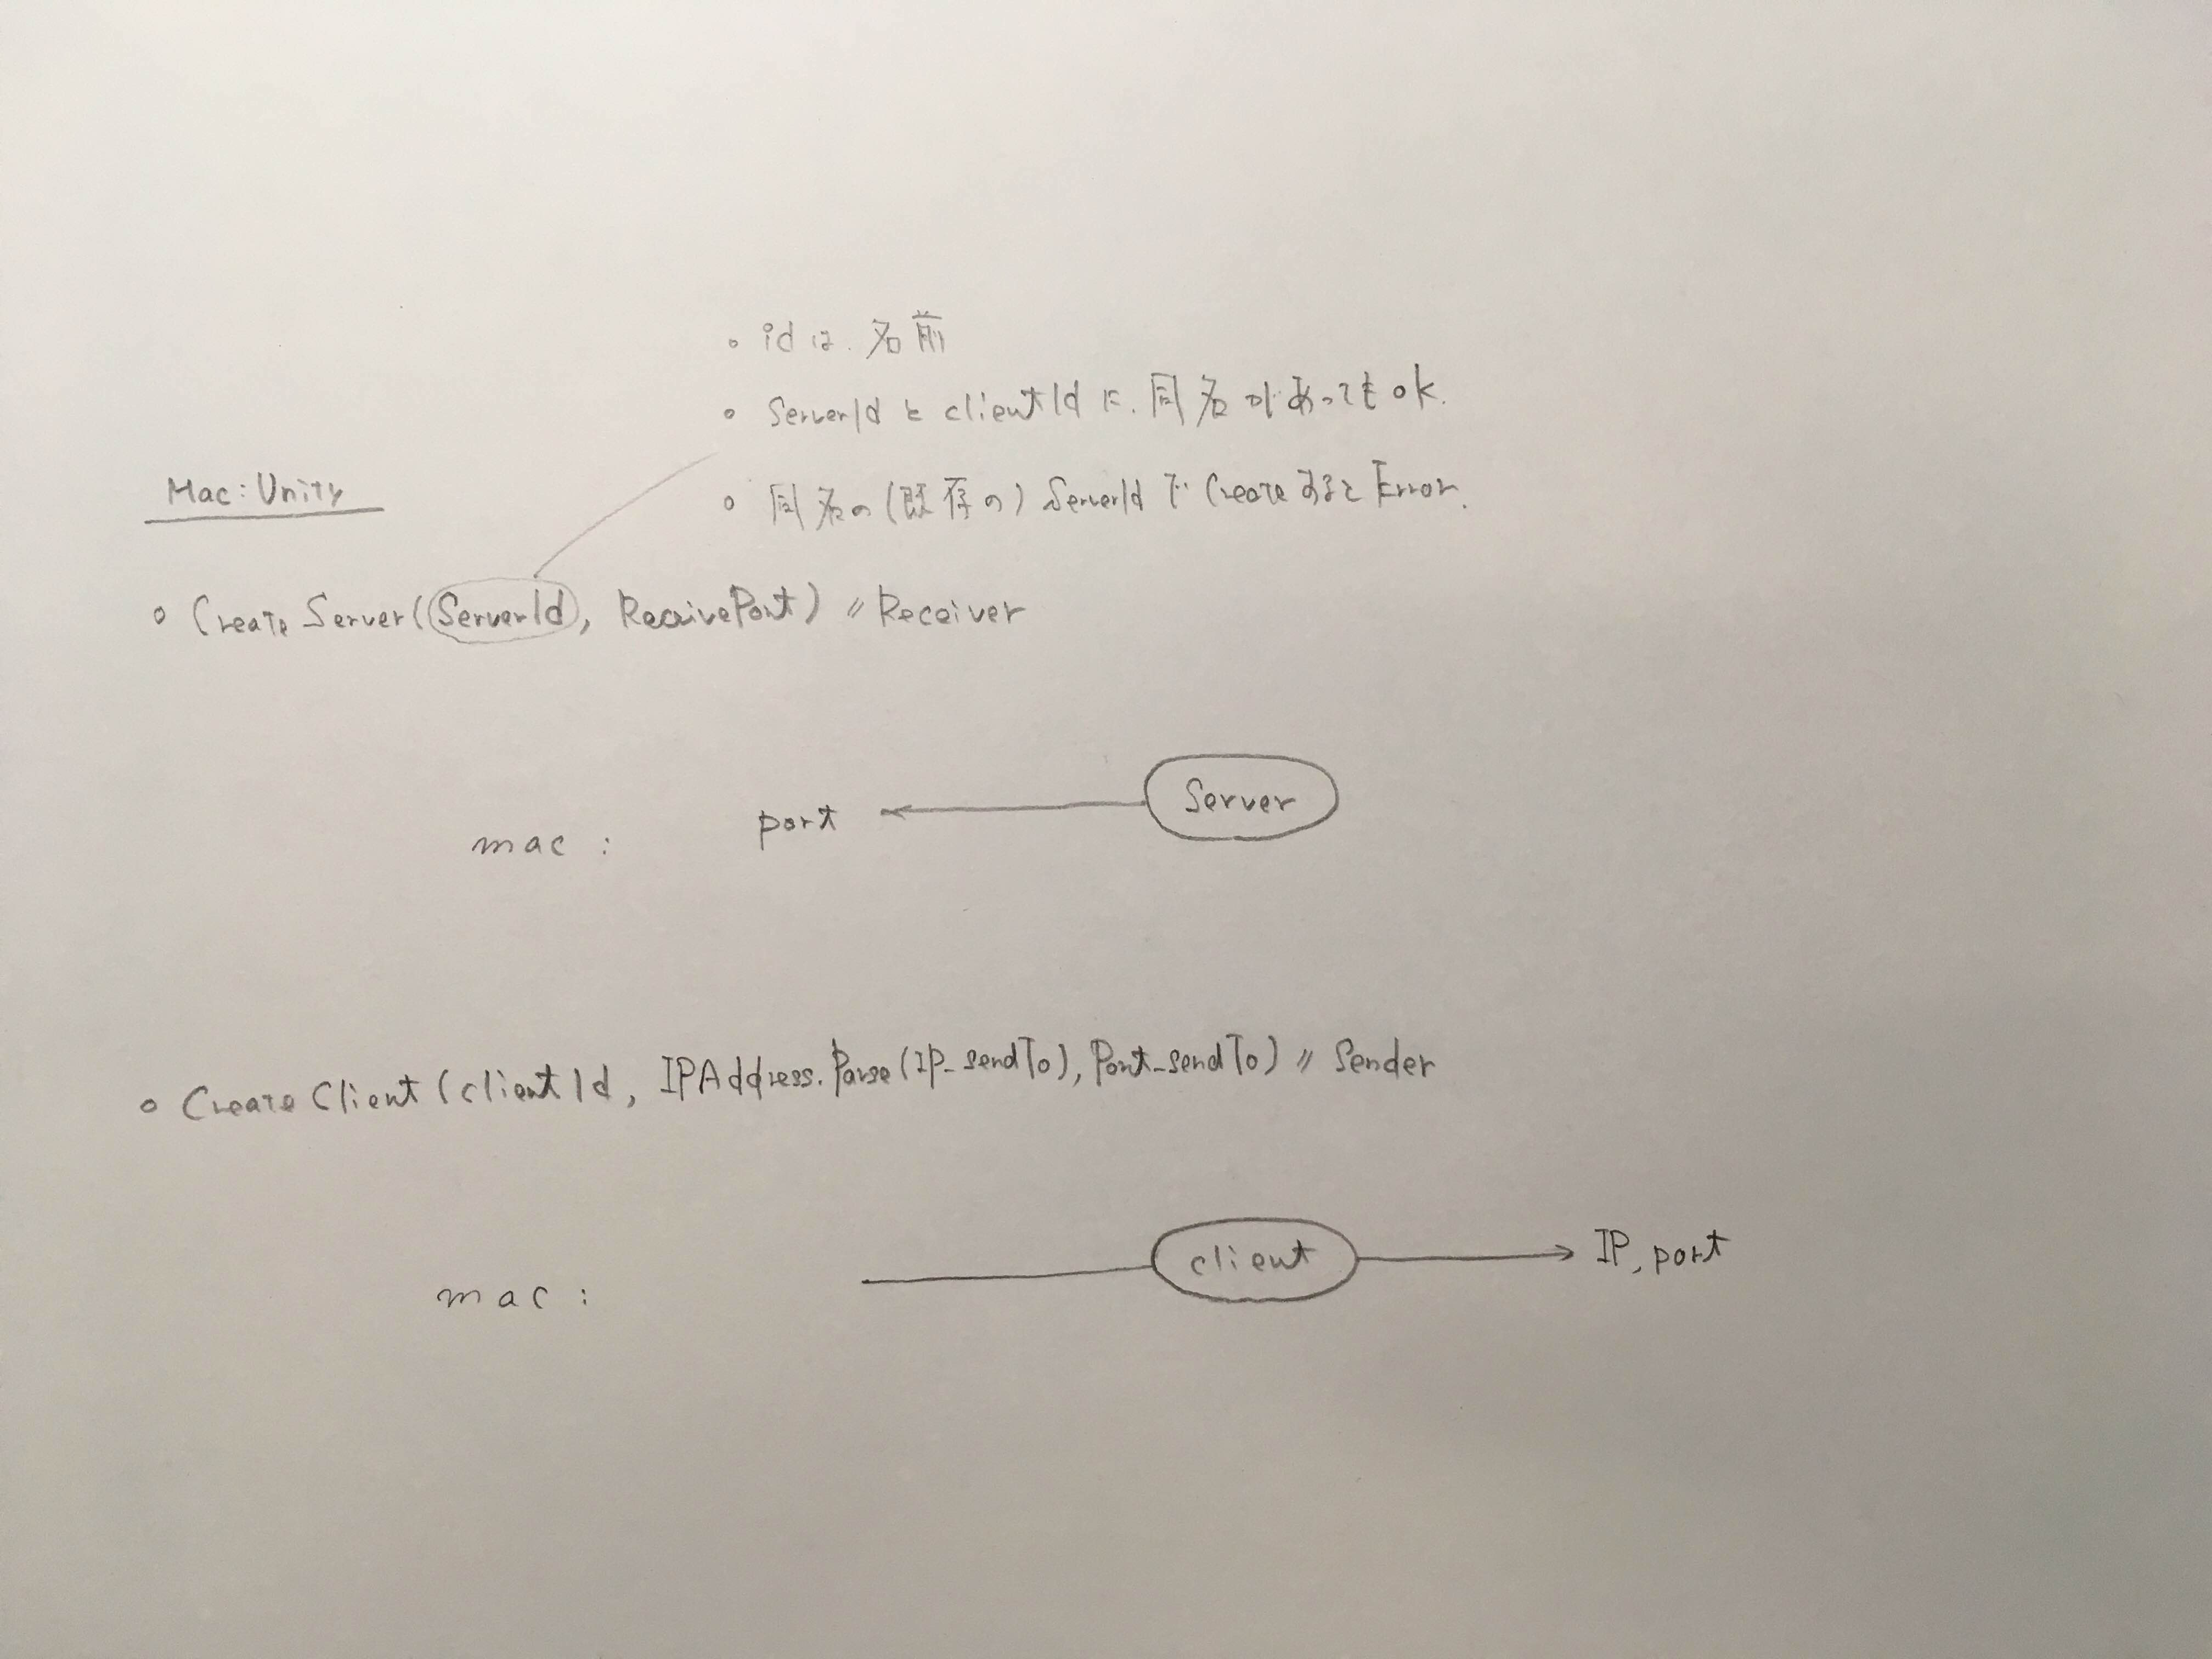 ◦ idは.名前
◦ ServerIdとclientIdに.同名があってもok.
Mac:Unity
◦ 同名の(既存の)ServerIdでCreateするとError.
◦ CreateServer(ServerId, ReceivePort) // Receiver
Server
port
mac :
◦ CreateClient(clientId, IPAddress.Parse(IP_sendTo), Port_sendTo) // Sender
client
IP, port
mac :